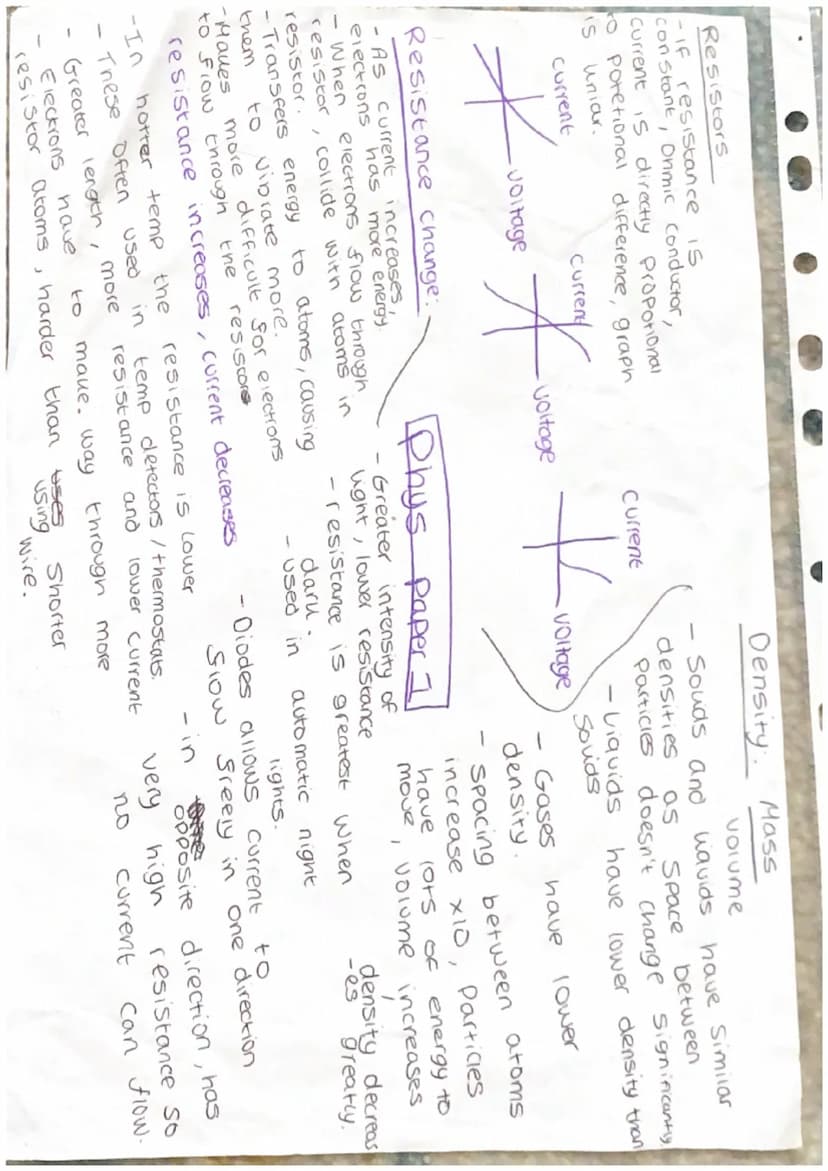 Resistors
- If resistance is
constant, Ohmic conductor,
current is directly propotional
to potetional difference, graph
is uniar.
current
voltage
current
voltage
current
voltage
Resistance change:
- As current increases,
electrons has more energy.
- When electrons flow through
resistor, collide with atoms in
resistor.
- Transfers energy to atoms, causing
them to vibrate more.
- Makes more difficult for electrons
to flow through the resistor
resistance increases, current decreases
- In hotter temp the resistance is lower
- These often used in temp detectors/thermostats.
- Greater length, more resistance and lower current
- Electrons have to make way through more
resistor atoms, harder than using shorter
wire.
Phys paper 1
- Greater intensity of
light, lower resistance
- resistance is greatest when
dark.
- used in automatic night
lights.
- Diodes allows current to
flow freely in one direction
- in opposite direction, has
very high resistance so
no current can flow.
Density: Mass
volume
- Solids and liquids have similar
densities as space between
particles doesn't change significantly
- Liquids have lower density than
solids
- Gases have lower
density.
- spacing between atoms
increase x10, Particles
have lots of energy to
move, volume increases
density decreas
-es greatly.